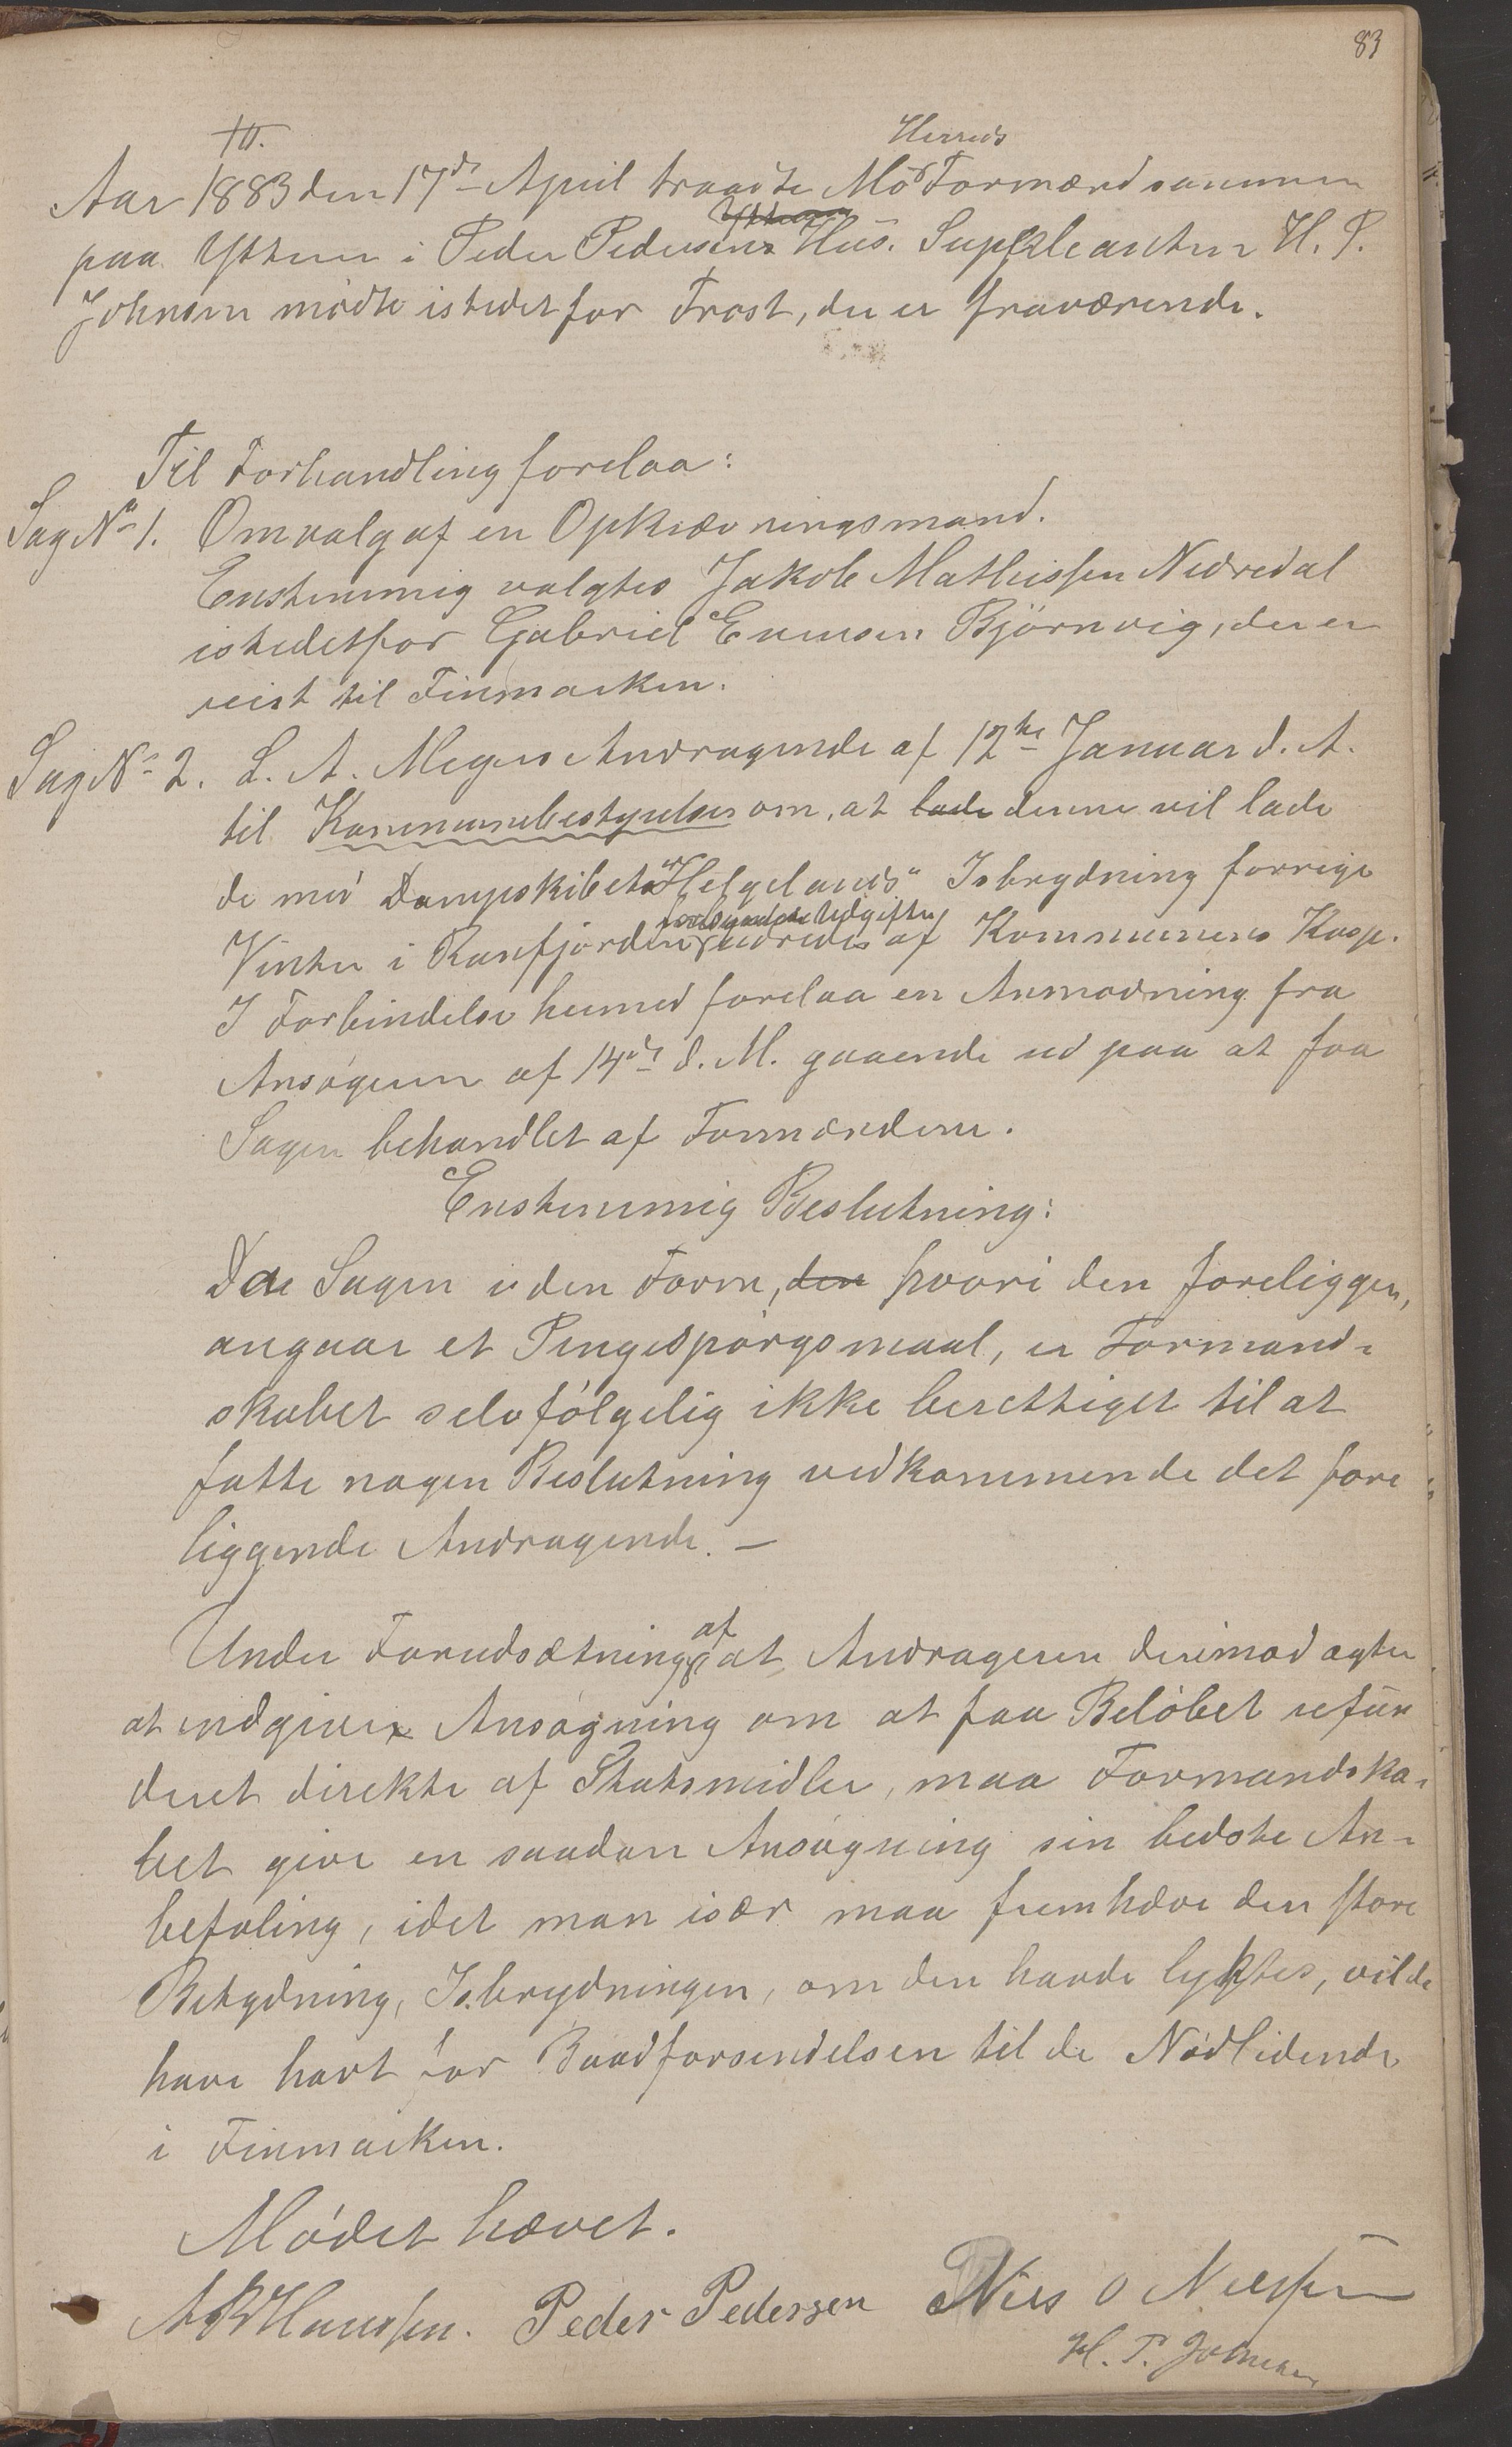 83
Herreds
Aar 1883 den 17de April traadte Mo Formænd sammen
paa Ytteren i Peder Pedersens Hus. Suppleanten H. P.
Johnsen mødte istedetfor Frost, der er fraværende.
Til Forhandling forelaa:
Sag No 1. Om valg af en Opkrævningsmand.
Enstemmig valgtes Jakob Mathissen Nedredal
istedetfor Gabriel Evensen Björnvig, der er
reist til Finmarken.
Sag No 2. L. A. Meyers Andragende af 12te Januar d. A.
til Kommunebestyrelsen om, at lade denne vil lade
de med Dampskibet "Helgelands" Isbrydning forrige
forbundne Udgifter
Vinter i Ranfjorden udredes af Kommunens Kasse.
I Forbindelse hermed forelaa en Anmodning fra
Ansøgeren af 14de d. M. gaaende ud paa at faa
Sagen behandlet af Formændene.
Enstemmig Beslutning:
Da Sagen i den Form, den hvori den foreligger,
angaar et Pengespørgsmaal, er Formand-
skabet selvfølgelig ikke berettiget til at
fatte nogen Beslutning vedkommende det fore
liggende Andragende. —
af
Under Forudsætning at Andrageren derimod agter
at indgive Ansøgning om at faa Beløbet refun
deret direkte af Statsmidler, maa Formandska-
bet give en saadan Ansøgning sin bedste An-
befaling, idet man især maa fremhæve den store
Betydning, Isbrydningen, om den havde lyktes, vilde
have havt for Baadforsendelsen til de Nødlidende
i Finmarken.
Mødet hævet.
A B Hanssen. Peder Pedersen Niels O Nilssen
H. P. Johnsen